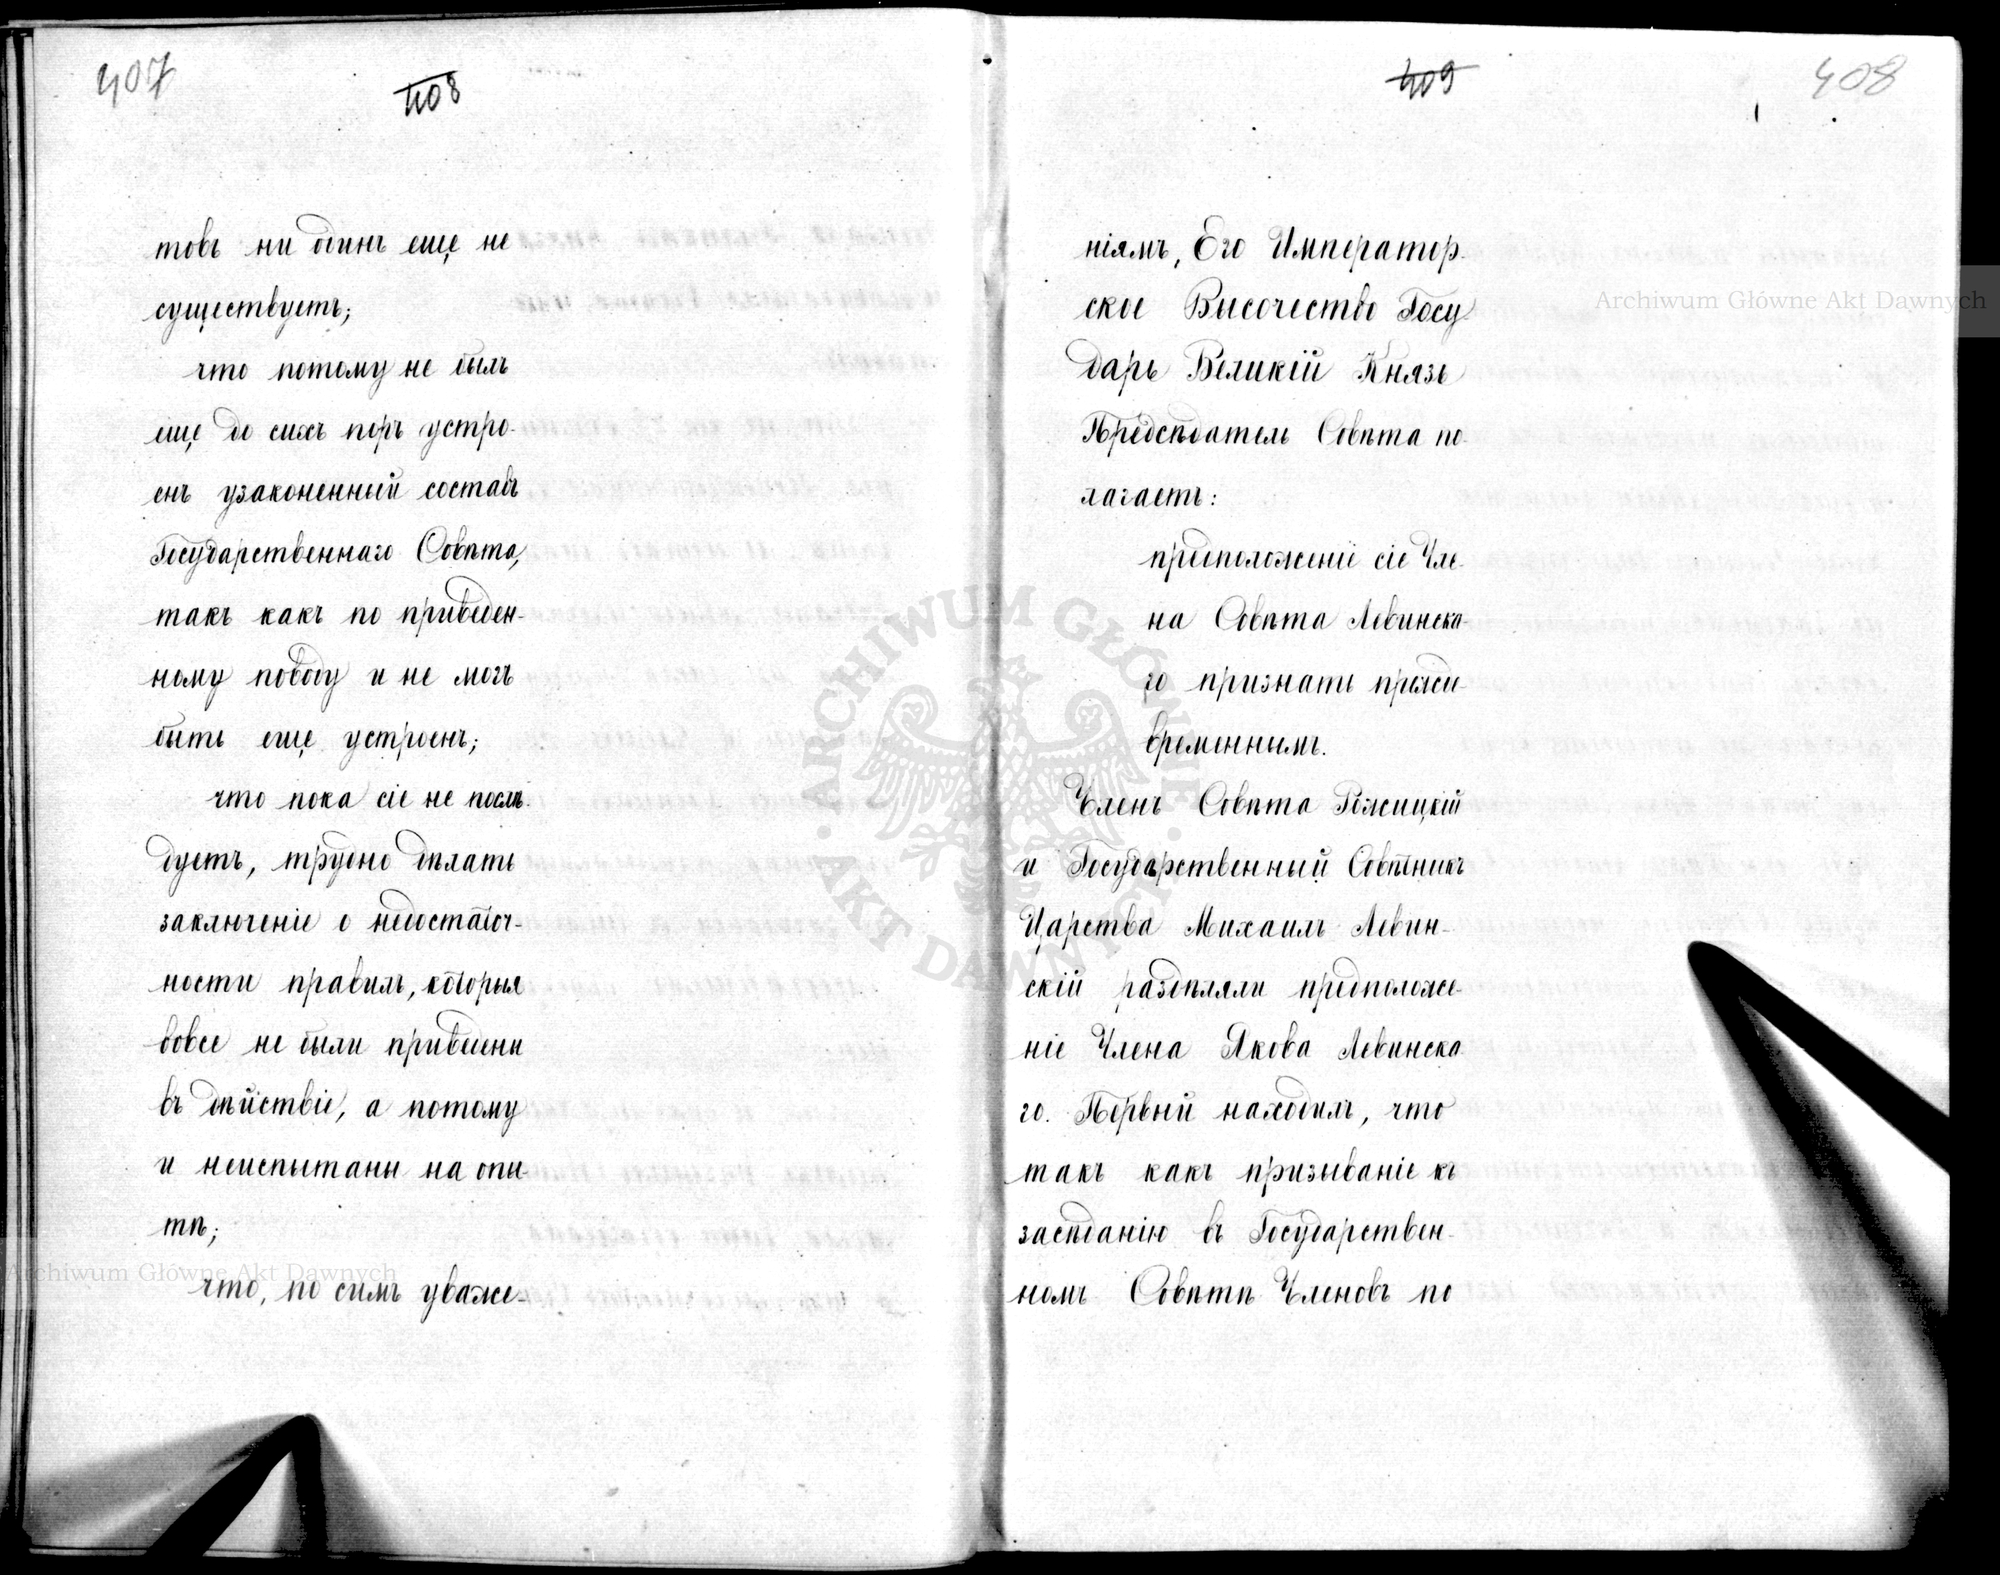 407
408
товъ ни одинъ еще не
существуетъ;
что потому не былъ
еще до сихъ поръ устро-
енъ узаконенный составъ
Государственнаго Совѣта,
такъ какъ по приведен-
ному поводу и не могъ
быть еще устроенъ;
что пока сіе не послѣ-
дуетъ, трудно дѣлать
заключеніе о недостаточ-
ности правилъ, которыя
вовсе не были приведены
въ дѣйствіе, а потому
и неиспытаны на опы-
тѣ;
что, по симъ уваже-
409
408
ніямъ, Его Император-
ское Высочество Госу-
дарь Великій Князь
Предсѣдатель Совѣта по-
лагаетъ:
предположеніе сіе Чле-
на Совѣта Левинска-
го признать прежде-
временнымъ.
Членъ Совѣта Рожицкій
и Государственный Совѣтникъ
Царства Михаилъ Левин-
скій раздѣляли предположе-
ніе Члена Якова Левинска-
го. Первый находилъ, что
такъ какъ призываніе къ
засѣданію въ Государствен-
номъ Совѣтѣ Членовъ по
Archiwum Główne Akt Dawnych
Archiwum Główne Akt Dawnych
ARCHIWUM GŁÓWNE AKT DAWNYCH